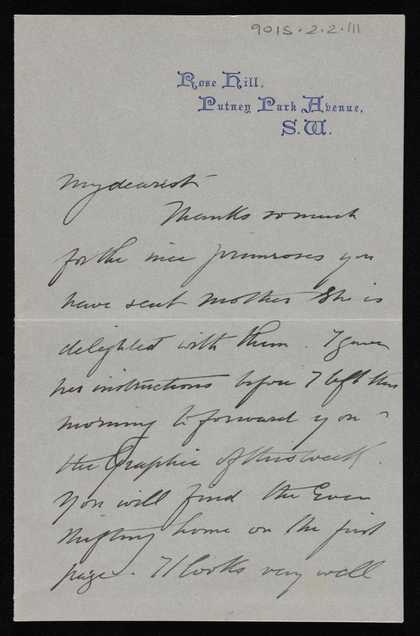 9015.2.2.111
Rose Hill,
Putney Park Avenue,
S.W.
My dearest
Thanks so much
for the nice primroses you
have sent Mother She is
delighted with them. I gave
her instructions before I left this
morning to forward you
the Graphic of this week.
You will find the
home on the first
page. It looks very well